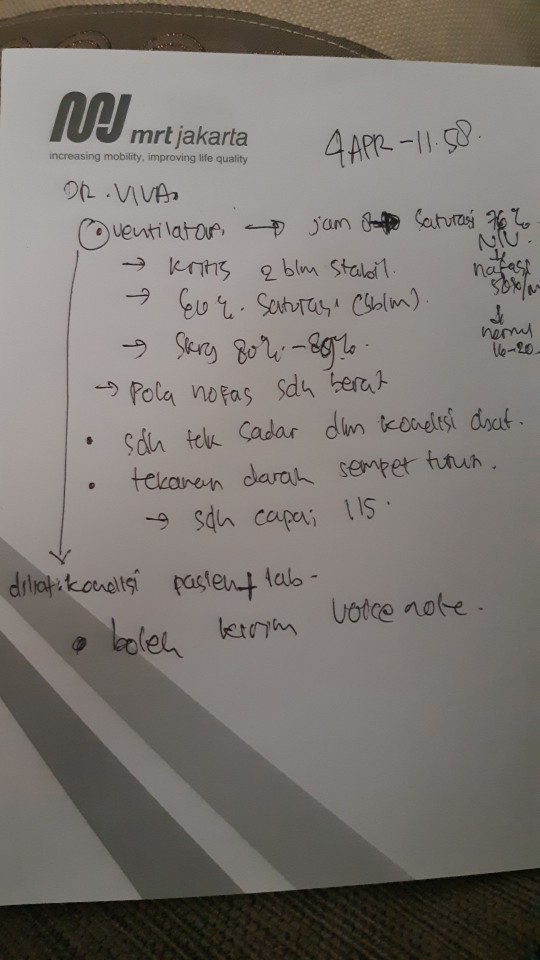 mrt jakarta
increasing mobility, improving life quality
4 APR - 11.58.
DR. VIVA.
ventilator, → jam saturasi 76%.
→ kritis 2 blm stabil.
nafas
50x/m
→ 60%. Saturasi (sblm).
→ Skrg 80% - 89%.
16-20
→ Pola nafas sdh berat
• sdh tdk sadar dlm kondisi obat.
• tekanan darah sempet turun.
→ sdh capai 115.
dilihat: kondisi pasien + lab -
• boleh kirim voice note.